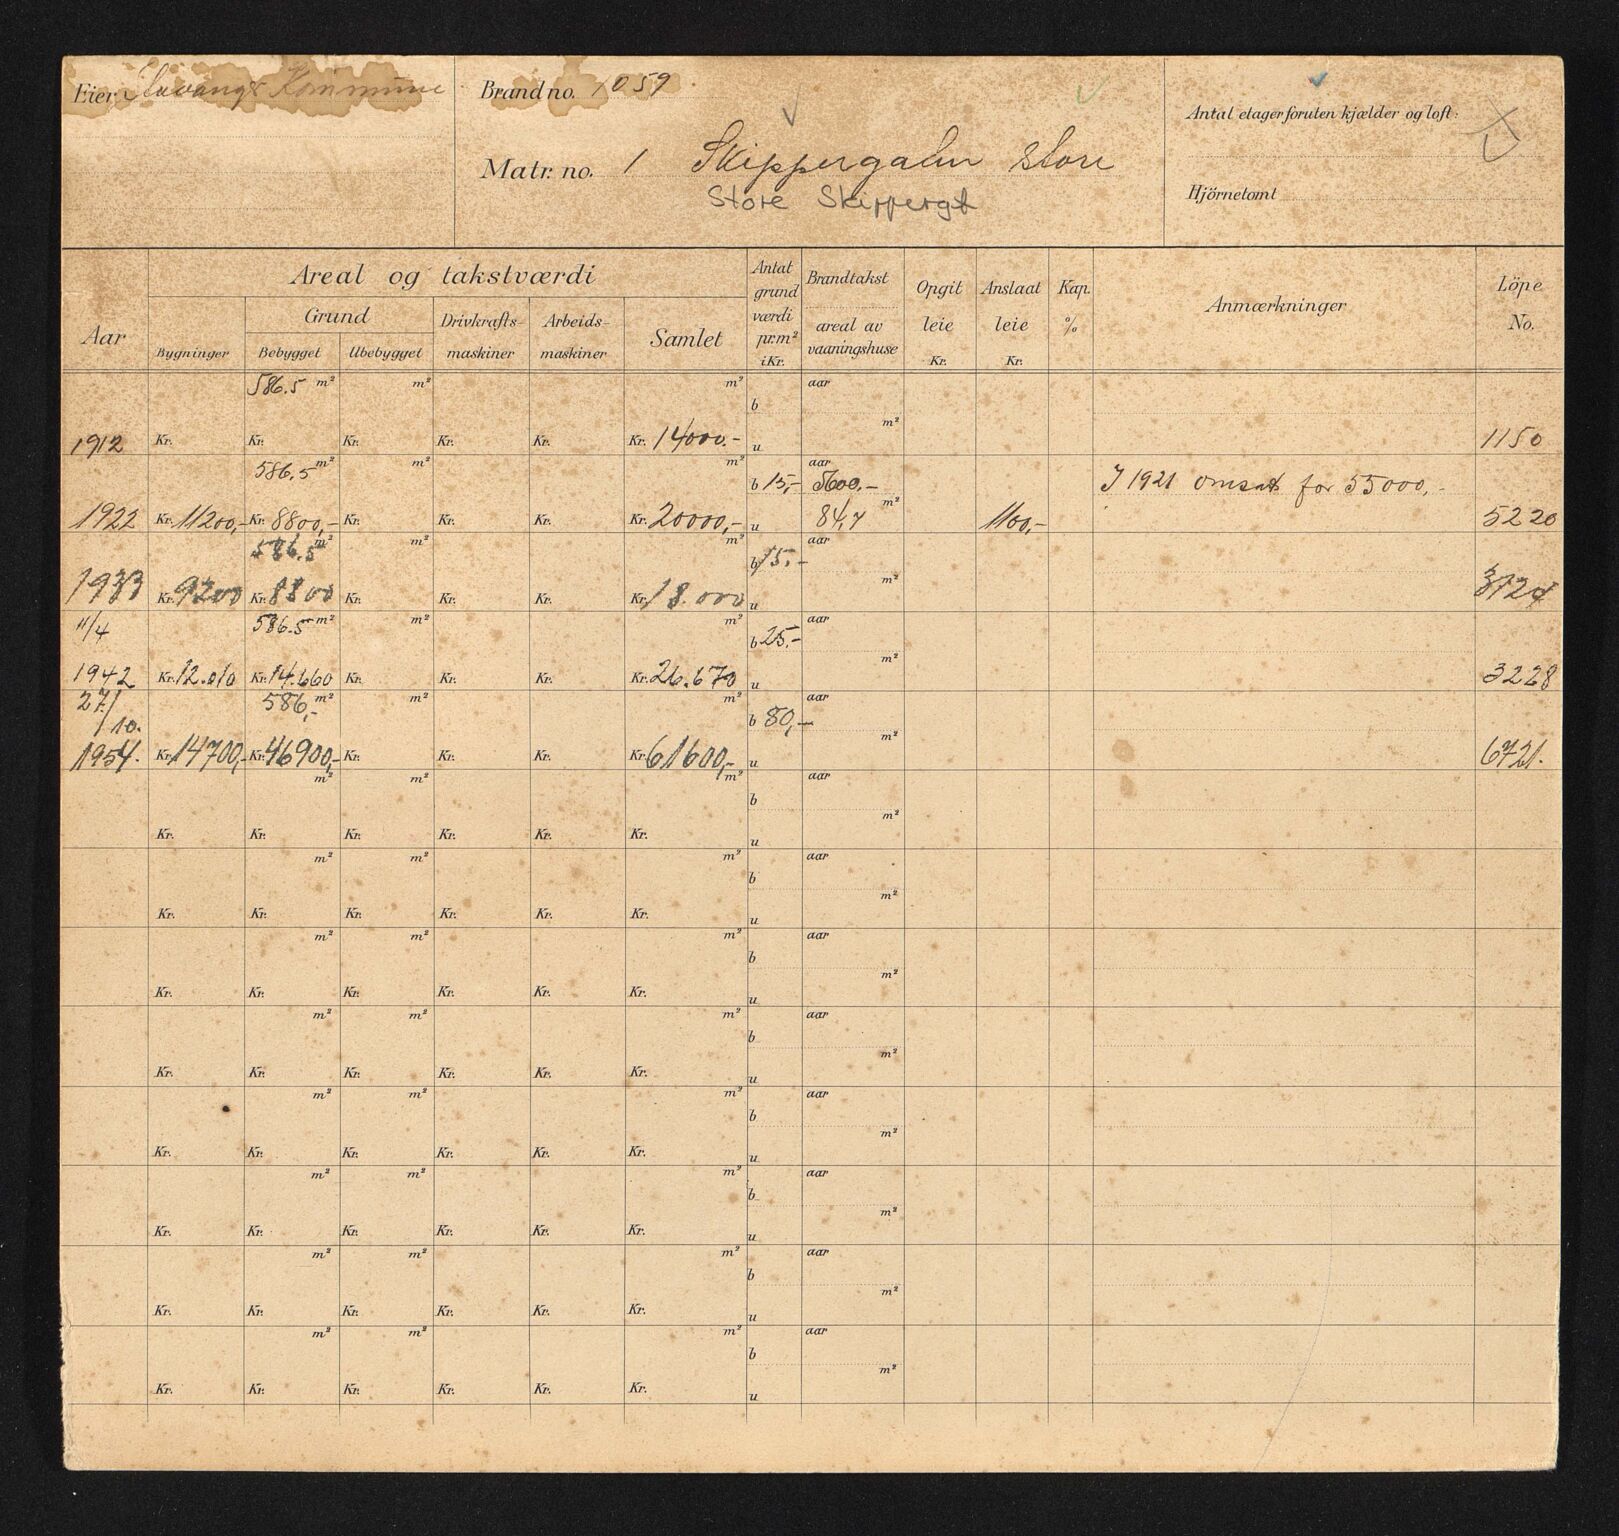 Eier Stavanger Kommune
Brand no. 1059
Matr. no. 1 Skippergaten store
Store Skippergt
Antal etager foruten kjælder og loft:
Hjörnetomt
Aar
Areal og takstværdi
Bygninger
Grund
Bebygget Ubebygget
Drivkrafts-
maskiner
Arbeids-
maskiner
Samlet
Antal
grund
værdi
pr. m²
i Kr.
Brandtakst
areal av
vaaningshuse
Opgit
leie
Kr.
Anslaat
leie
Kr.
Kap.
%
Anmærkninger
Löpe
No.
586.5 m² m² m² aar
b
m²
1912 Kr. Kr. Kr. Kr. Kr. Kr. 14000.- u 1150
586.5 m² m² m² aar
b 15,- 5600,- I 1921 omsat for 55000,-
m²
1922 Kr. 11200,- Kr. 8800,- Kr. Kr. Kr. Kr. 20000,- u 84,7 1100,- 5220
586.5 m² m² m² aar
b 15.-
m²
1933 Kr. 9200 Kr. 8800 Kr. Kr. Kr. Kr. 18.000 u
11/4 586.5 m² m² m² aar
b 25.-
m²
1942 Kr. 12.010 Kr. 14.660 Kr. Kr. Kr. Kr. 26.670 u 3228
27/10. 586,- m² m² m² aar
b 80,-
m²
1954. Kr. 14700,- Kr. 46900,- Kr. Kr. Kr. Kr. 61600,- u 6721.
m² m² m² aar
b
m²
Kr. Kr. Kr. Kr. Kr. Kr. u
m² m² m² aar
b
m²
Kr. Kr. Kr. Kr. Kr. Kr. u
m² m² m² aar
b
m²
Kr. Kr. Kr. Kr. Kr. Kr. u
m² m² m² aar
b
m²
Kr. Kr. Kr. Kr. Kr. Kr. u
m² m² m² aar
b
m²
Kr. Kr. Kr. Kr. Kr. Kr. u
m² m² m² aar
b
m²
Kr. Kr. Kr. Kr. Kr. Kr. u
m² m² m² aar
b
m²
Kr. Kr. Kr. Kr. Kr. Kr. u
m² m² m² aar
b
m²
Kr. Kr. Kr. Kr. Kr. Kr. u